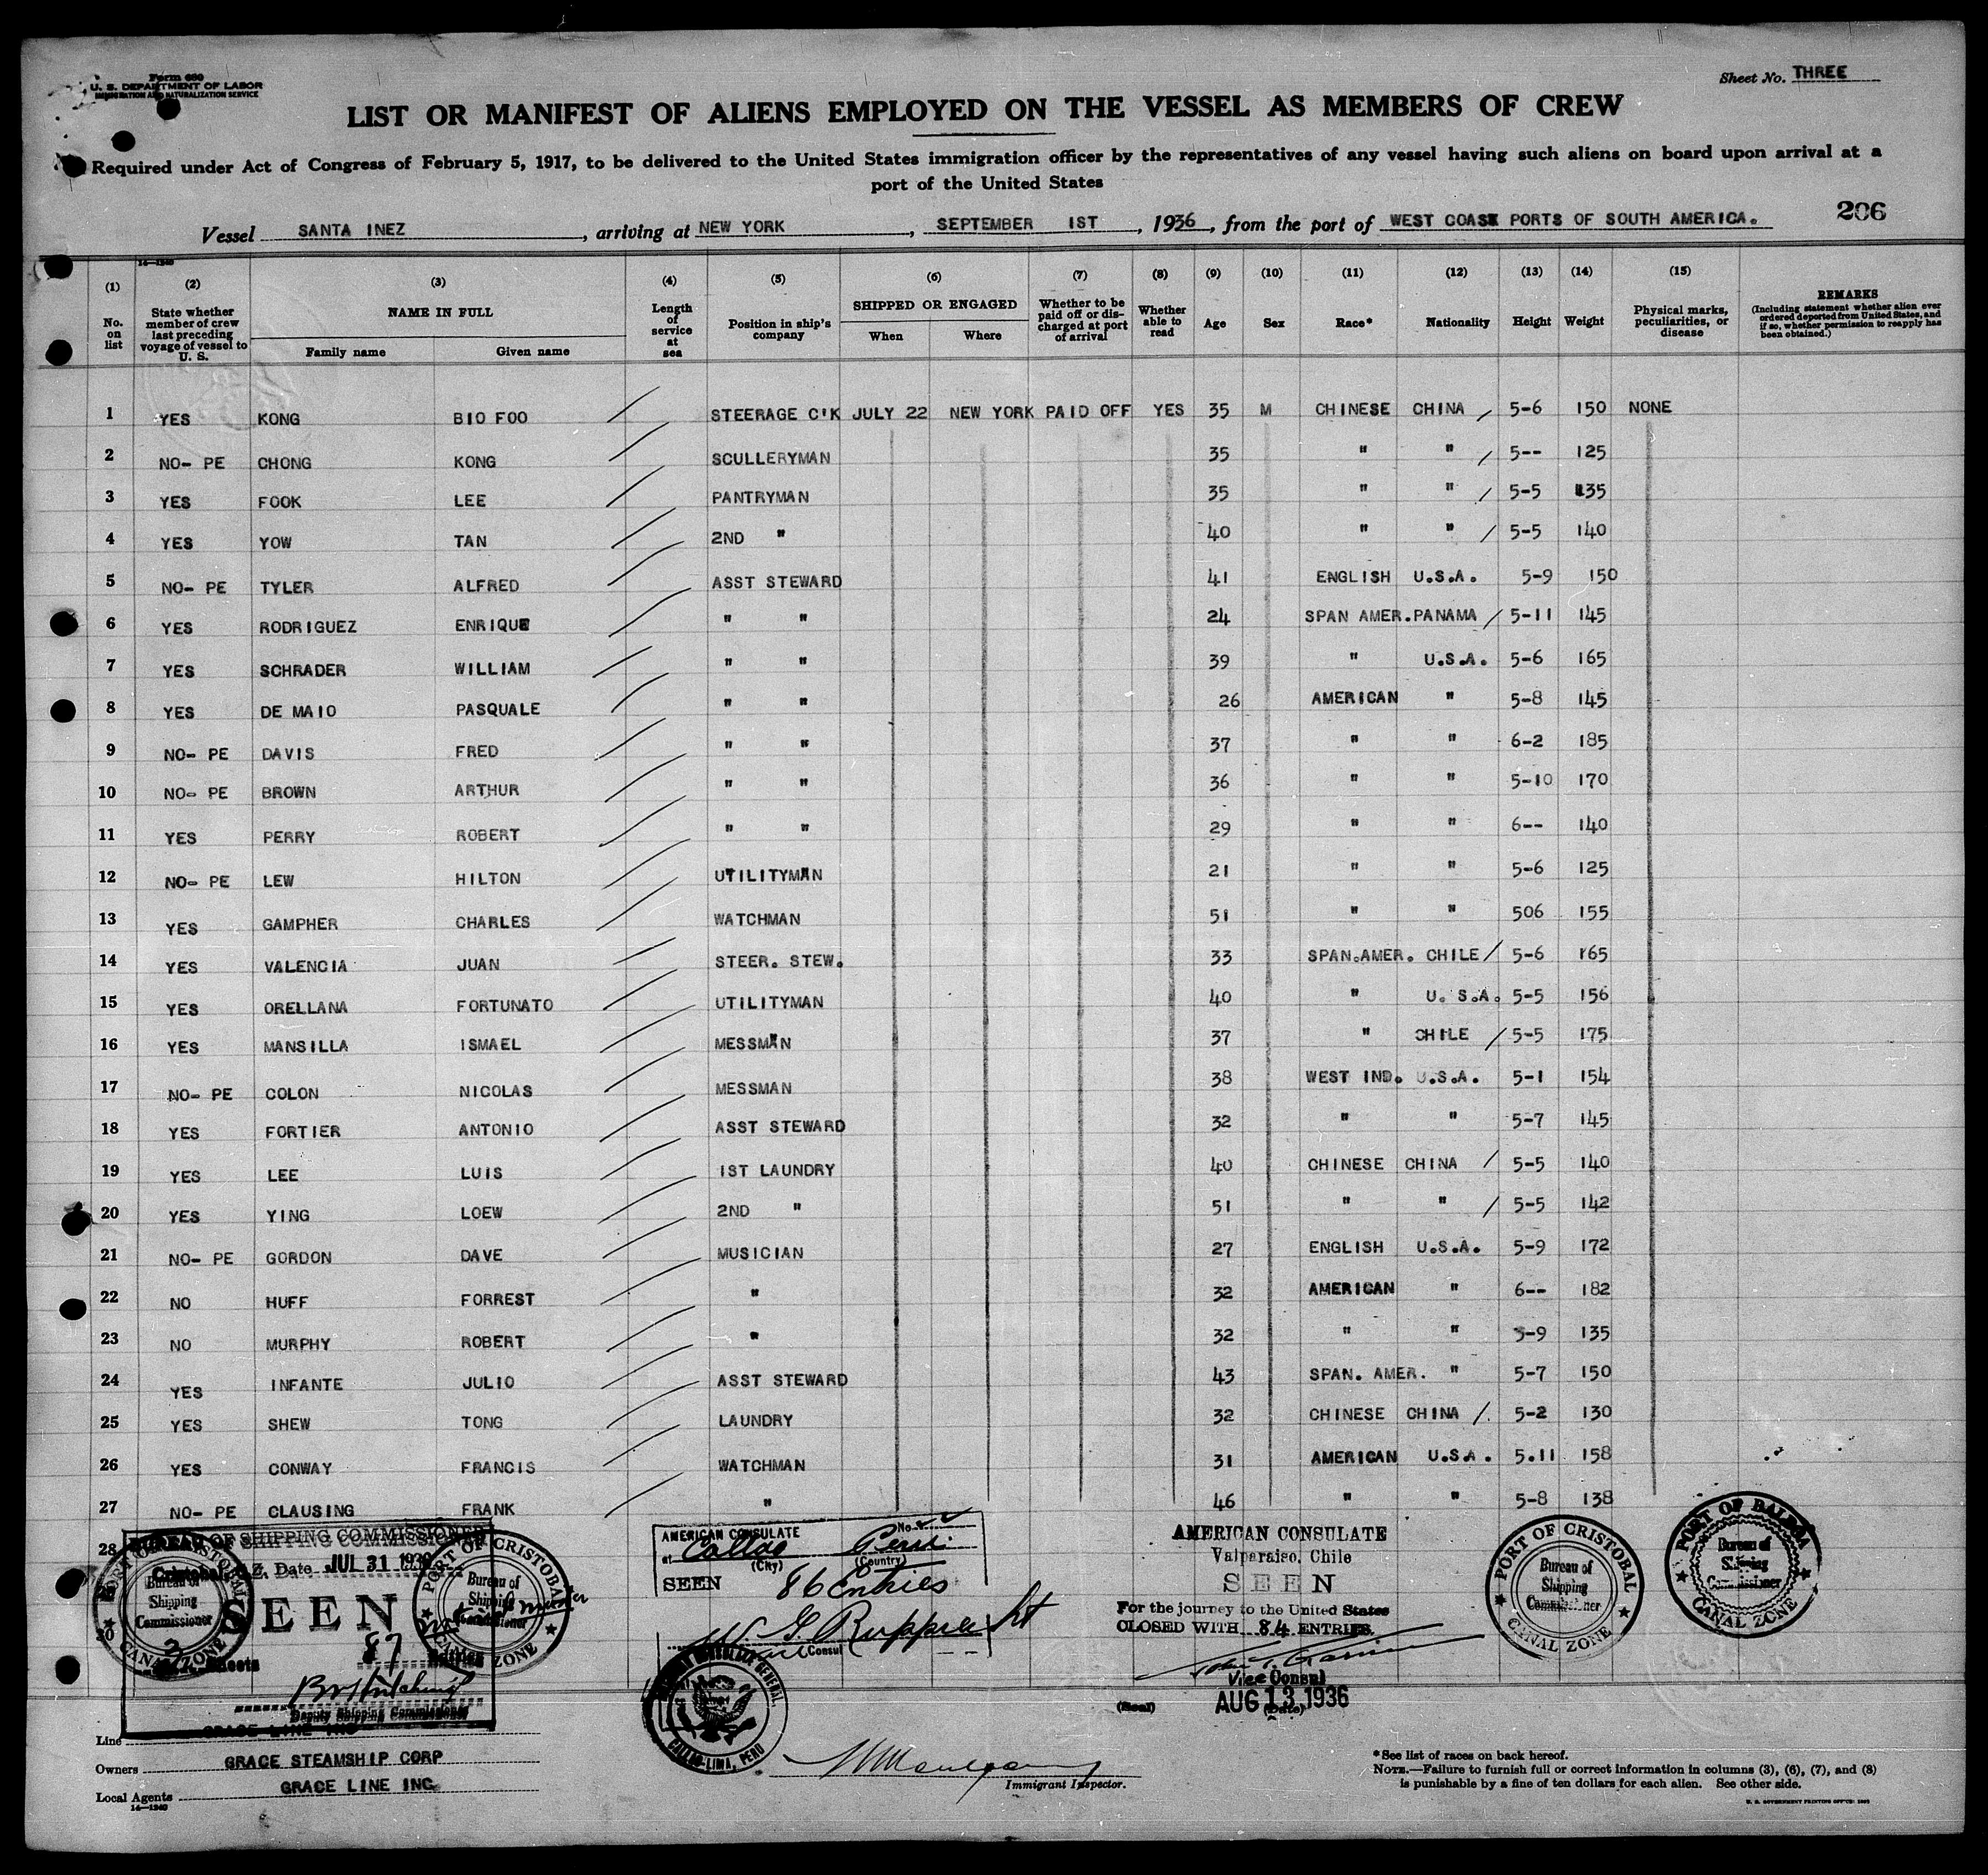 Form 680
U. S. DEPARTMENT OF LABOR
IMMIGRATION AND NATURALIZATION SERVICE
Sheet No. THREE
LIST OR MANIFEST OF ALIENS EMPLOYED ON THE VESSEL AS MEMBERS OF CREW
Required under Act of Congress of February 5, 1917, to be delivered to the United States immigration officer by the representatives of any vessel having such aliens on board upon arrival at a
port of the United States
206
Vessel SANTA INEZ, arriving at NEW YORK, SEPTEMBER 1ST, 1936, from the port of WEST COAST PORTS OF SOUTH AMERICA.
14—1240
(1) No. on list (2) State whether member of crew last preceding voyage of vessel to U. S. (3) NAME IN FULL Family name Given name (4) Length of service at sea (5) Position in ship's company (6) SHIPPED OR ENGAGED When Where (7) Whether to be paid off or discharged at port of arrival (8) Whether able to read (9) Age (10) Sex (11) Race* (12) Nationality (13) Height (14) Weight (15) Physical marks, peculiarities, or disease REMARKS (Including statement whether alien ever ordered deported from United States, and if so, whether permission to reapply has been obtained.)
1 YES KONG BIO FOO STEERAGE C'K JULY 22 NEW YORK PAID OFF YES 35 M CHINESE CHINA / 5-6 150 NONE
2 NO- PE CHONG KONG SCULLERYMAN 35 " " / 5-- 125
3 YES FOOK LEE PANTRYMAN 35 " " / 5-5 135
4 YES YOW TAN 2ND " 40 " " / 5-5 140
5 NO- PE TYLER ALFRED ASST STEWARD 41 ENGLISH U.S.A. 5-9 150
6 YES RODRIGUEZ ENRIQUE " " 24 SPAN AMER. PANAMA / 5-11 145
7 YES SCHRADER WILLIAM " " 39 " U.S.A. 5-6 165
8 YES DE MAIO PASQUALE " " 26 AMERICAN " 5-8 145
9 NO- PE DAVIS FRED " " 37 " " 6-2 185
10 NO- PE BROWN ARTHUR " " 36 " " 5-10 170
11 YES PERRY ROBERT " " 29 " " 6-- 140
12 NO- PE LEW HILTON UTILITYMAN 21 " " 5-6 125
13 YES GAMPHER CHARLES WATCHMAN 51 " " 506 155
14 YES VALENCIA JUAN STEER. STEW. 33 SPAN.AMER. CHILE / 5-6 165
15 YES ORELLANA FORTUNATO UTILITYMAN 40 " U. S.A. 5-5 156
16 YES MANSILLA ISMAEL MESSMAN 37 " CHILE / 5-5 175
17 NO- PE COLON NICOLAS MESSMAN 38 WEST IND. U.S.A. 5-1 154
18 YES FORTIER ANTONIO ASST STEWARD 32 " " 5-7 145
19 YES LEE LUIS 1ST LAUNDRY 40 CHINESE CHINA / 5-5 140
20 YES YING LOEW 2ND " 51 " " / 5-5 142
21 NO- PE GORDON DAVE MUSICIAN 27 ENGLISH U.S.A. 5-9 172
22 NO HUFF FORREST " 32 AMERICAN " 6-- 182
23 NO MURPHY ROBERT " 32 " " 5-9 135
24 YES INFANTE JULIO ASST STEWARD 43 SPAN. AMER. " 5-7 150
25 YES SHEW TONG LAUNDRY 32 CHINESE CHINA / 5-2 130
26 YES CONWAY FRANCIS WATCHMAN 31 AMERICAN U.S.A. 5.11 158
27 NO- PE CLAUSING FRANK " 46 " " 5-8 138
28
BUREAU OF SHIPPING COMMISSIONER
Cristobal, C.Z. Date JUL 31 1936
SEEN
87
Deputy Shipping Commissioner
PORT OF CRISTOBAL
Bureau of Shipping Commissioner
CANAL ZONE
PORT OF CRISTOBAL
Bureau of Shipping Commissioner
CANAL ZONE
AMERICAN CONSULATE No.
at Callao Peru
(City) (Country)
SEEN 86 Entries
Consul
CALLAO-LIMA, PERU
AMERICAN CONSULATE
Valparaiso, Chile
SEEN
For the journey to the United States
CLOSED WITH 84 ENTRIES.
Vice Consul
(Seal) AUG 13 1936
(Date)
PORT OF CRISTOBAL
Bureau of Shipping Commissioner
CANAL ZONE
PORT OF BALBOA
Bureau of Shipping Commissioner
CANAL ZONE
Line GRACE LINE INC
Owners GRACE STEAMSHIP CORP
Local Agents GRACE LINE INC
14—1240
Immigrant Inspector.
*See list of races on back hereof.
NOTE.—Failure to furnish full or correct information in columns (3), (6), (7), and (8)
is punishable by a fine of ten dollars for each alien. See other side.
U. S. GOVERNMENT PRINTING OFFICE